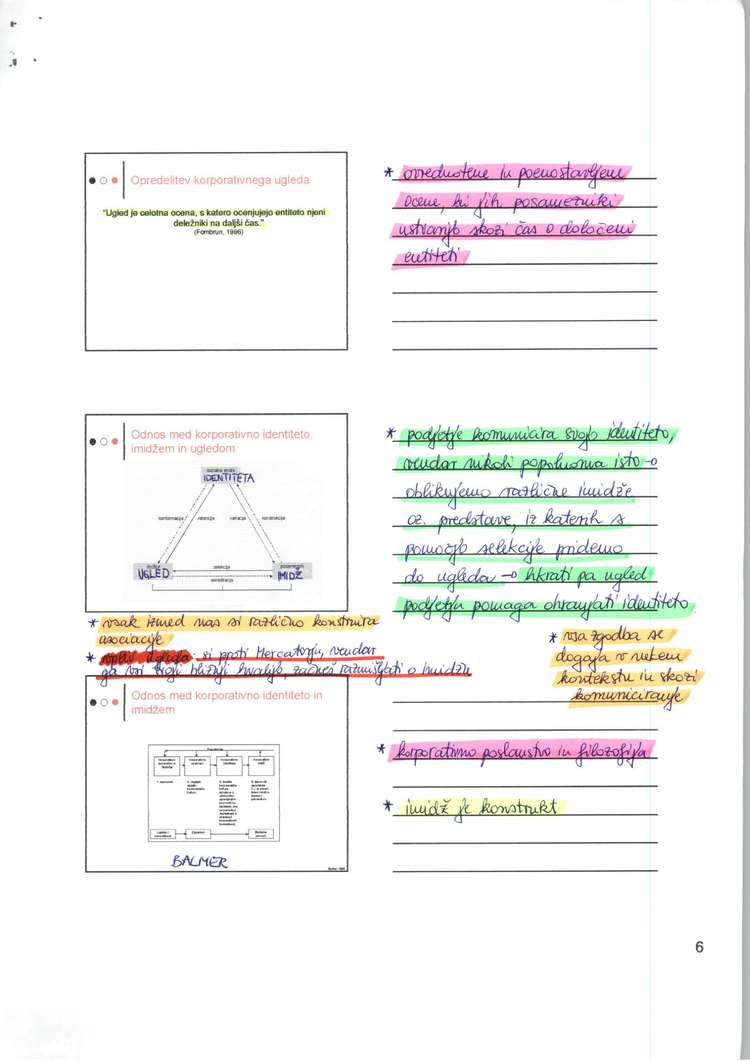 Opredelitev korporativnega ugleda
"Ugled je celotna ocena, s katero ocenjujejo entiteto njeni
deležniki na daljši čas."
(Fombrun, 1996)
* ovrednotene in poenostavljene
ocene, ki jih posamezniki
ustvarijo skozi čas o določeni
entiteti
Odnos med korporativno identiteto,
imidžem in ugledom
IDENTITETA
konformacija
retencija
variacija
konstrukcija
UGLED
selekcija
IMIDŽ
* podjetje komunicira svojo identiteto,
vendar nikoli popolnoma isto →
oblikujemo različne imidže
oz. predstave, iz katerih s
pomočjo selekcije pridemo
do ugleda → hkrati pa ugled
podjetju pomaga ohranjati identiteto
* vsak izmed nas si različno konstruira
asociacije
* vpliv ugleda: si proti Mercatorju, vendar
ga vsi tvoji bližnji hvalijo, začneš razmišljati o imidžu
* vsa zgodba se
dogaja v nekem
kontekstu in skozi
komuniciranje
Odnos med korporativno identiteto in
imidžem
BALMER
* korporativno poslanstvo in filozofija
* imidž je konstrukt
6